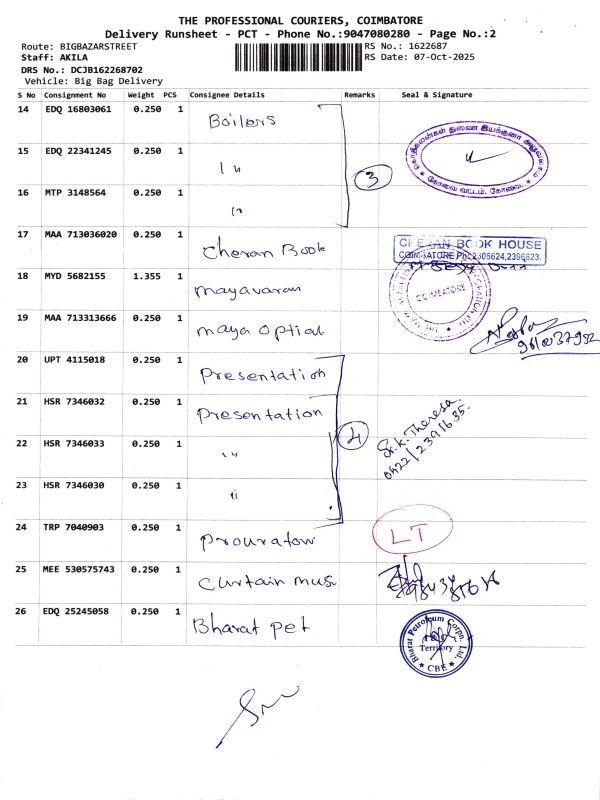 THE PROFESSIONAL COURIERS, COIMBATORE
Delivery Runsheet - PCT - Phone No.:9047080280 - Page No.:2
Route: BIGBAZARSTREET RS No.: 1622687
Staff: AKILA RS Date: 07-Oct-2025
DRS No.: DCJB162268702
Vehicle: Big Bag Delivery
S No Consignment No Weight PCS Consignee Details Remarks Seal & Signature
14 EDQ 16803061 0.250 1 Boilers
15 EDQ 22341245 0.250 1 3
16 MTP 3148564 0.250 1
17 MAA 713036020 0.250 1 Cheran Book CHERAN BOOK HOUSE
COIMBATORE Ph: 2306624,2396623.
18 MYD 5682155 1.355 1 mayavaram COIMBATORE
19 MAA 713313666 0.250 1 maya optical
20 UPT 4115018 0.250 1 Presentation
21 HSR 7346032 0.250 1 Presentation 4 Sr. K. Theresa
0422/2391635.
22 HSR 7346033 0.250 1 "
23 HSR 7346030 0.250 1 "
24 TRP 7040903 0.250 1 LT
25 MEE 530575743 0.250 1 curtain
26 EDQ 25245058 0.250 1 Bharat pet Bharat Petroleum Corpn. Ltd. Territory CBE